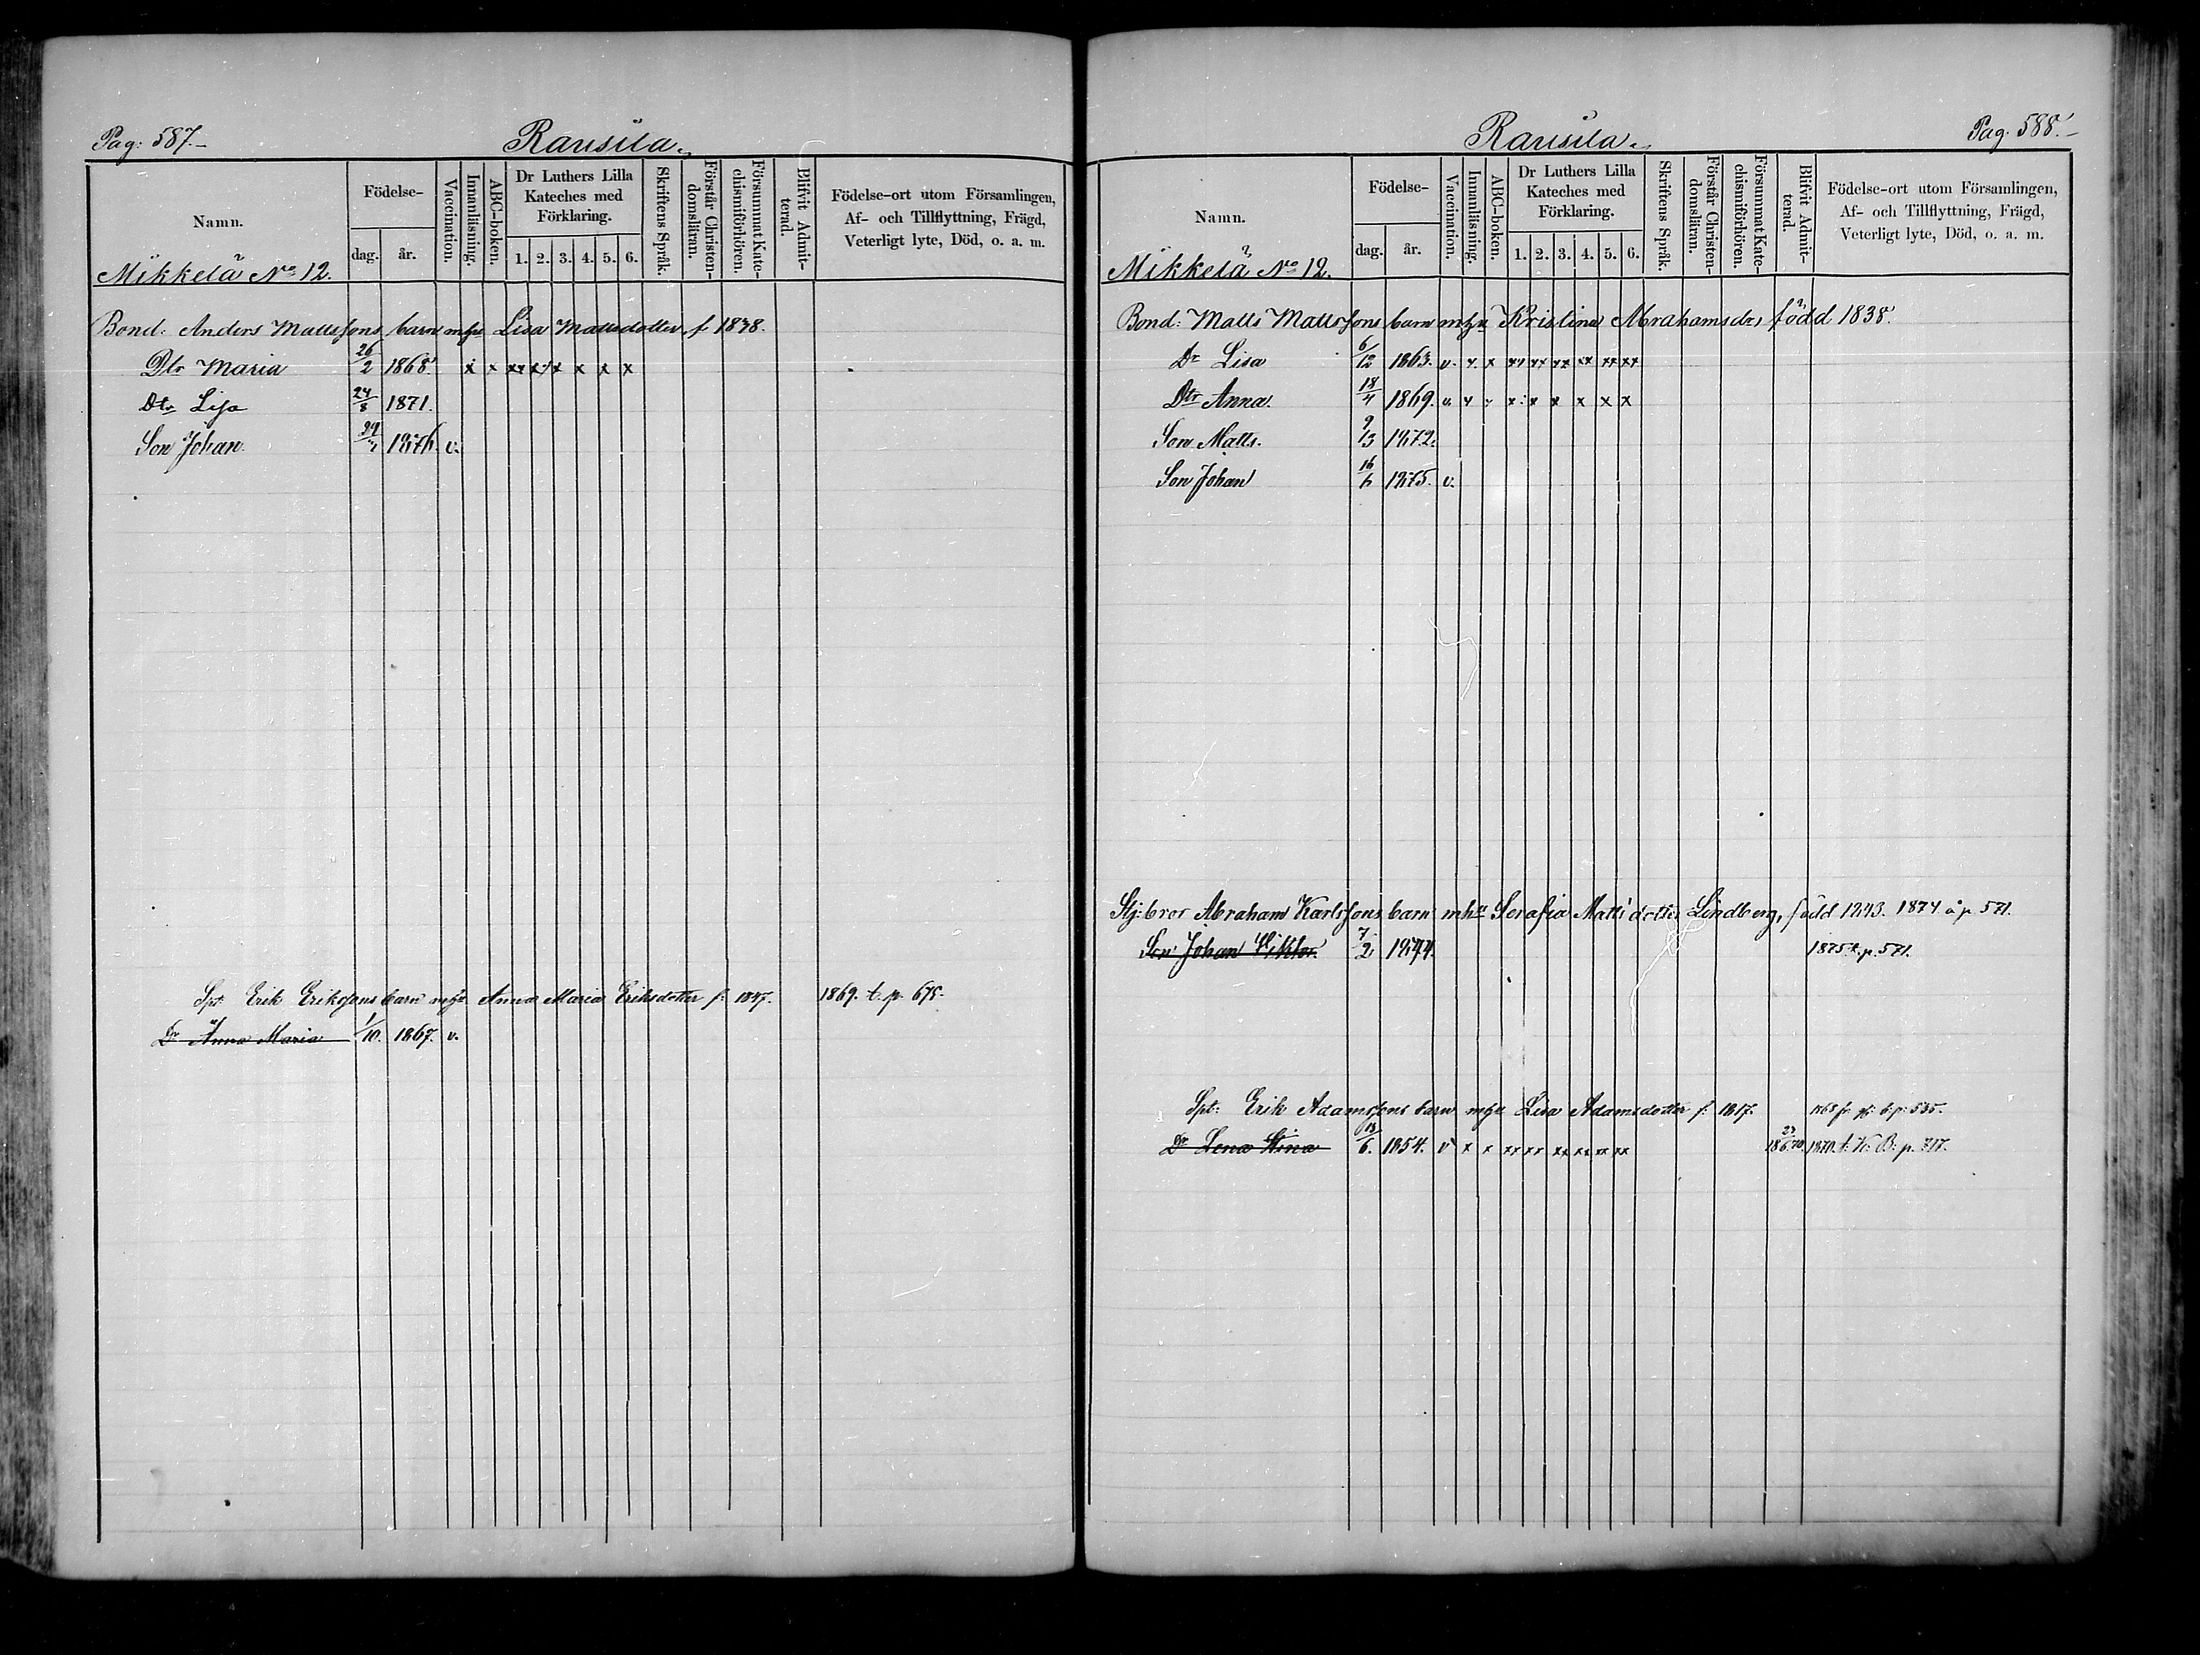 Pag: 587.
Rausila.
Namn.
Födelse-
dag.
år.
Vaccination.
Innanläsning.
ABC-boken.
Dr Luthers Lilla
Kateches med
Förklaring.
1. 2. 3. 4. 5. 6.
Skriftens Språk.
Förstår Christen-
domsläran.
Försummat Kate-
chismiförhören.
Blifvit Admit-
terad.
Födelse-ort utom Församlingen,
Af- och Tillflyttning, Frägd,
Veterligt lyte, Död, o. a. m.
Mikkelä No 12.
Bond: Anders Mattssons barn mhu Lisa Mattsdotter f 1838.
Dtr Maria 26/2 1868. x x xx xx x x x x
Dtr Lisa 24/8 1871.
Son Johan 1876. v.
Spt: Erik Erikssons barn mhu Anna Maria Eriksdotter f: 1847. 1869. t. p. 675.
Dr Anna Maria 1/10. 1867. v.
Pag: 588.
Rausila.
Namn.
Födelse-
dag.
år.
Vaccination.
Innanläsning.
ABC-boken.
Dr Luthers Lilla
Kateches med
Förklaring.
1. 2. 3. 4. 5. 6.
Skriftens Språk.
Förstår Christen-
domsläran.
Försummat Kate-
chismiförhören.
Blifvit Admit-
terad.
Födelse-ort utom Församlingen,
Af- och Tillflyttning, Frägd,
Veterligt lyte, Död, o. a. m.
Mikkelä No 12.
Bond: Matts Mattssons barn mhu Kristina Abrahamsdr född 1838.
Dr Lisa 6/12 1863. v. x. x xx xx xx xx xx xx
Dtr Anna. 18/4 1869. v. x x x x x x x
Son Matts. 9/3 1872.
Son Johan 16/6 1875. v.
Stj:bror Abraham Karlssons barn mhu Serafia Matts dotter Lindberg, född 1843. 1874 å p 571.
Son Johan Viktor. 7/2 1874. 1875 t. p. 571.
Spt: Erik Adamssons barn mhu Lisa Adamsdotter f: 1817. 1868 fr. b. p. 535.
Dr Lena Stina 13/6. 1854. v x x xx xx xx xx xx xx 1870. t. K. B. p. 717.